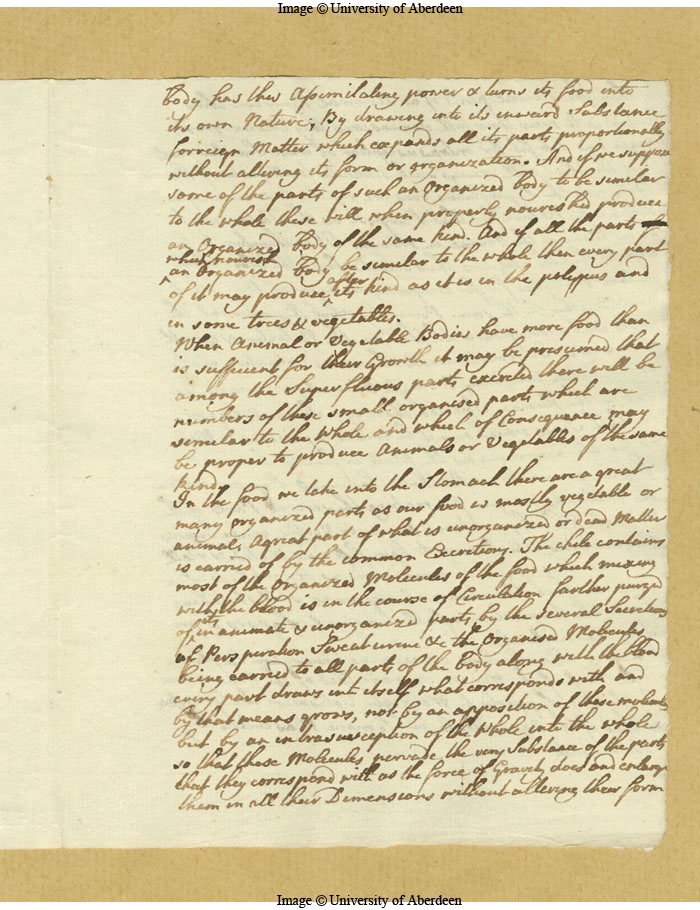 Image © University of Aberdeen
body has this Assimilating power & turns its food into
its own Nature, By drawing into its inward Substance
forreign Matter which expands all its parts proportionally
without altering its form or organization. And if we suppose
some of the parts of such an Organized body to be similar
to the whole these will when properly nourished produce
an Organized body of the same kind. And if all the parts of
when nourish
an Organized body be similar to the whole then every part
of it may produce after its kind as it is in the polypus and
in some trees & vegetables.
When Animal or Vegetable Bodies have more food than
is sufficient for their Growth it may be presumed that
among the Superfluous parts excreted there will be
numbers of these small organised parts which are
similar to the Whole and which of Consequence may
be proper to produce Animals or Vegetables of the same
kind
In the food we take into the Stomach there are a great
many organized parts as our food is mostly vegetable or
animal, A great part of what is unorganized or dead Matter
is carried of by the common Excretions. The chile contains
most of the Organized Molecules of the food which mixing
with the blood is in the course of Circulation farther purg'd
of its inanimate & unorganized parts by the several Secretions
of Perspiration Sweat urine &c the Organised Molecules
being carried to all parts of the body along with the blood
every part draws into itself what corresponds with and
by that means grows, not by an apposition of these molecules
but by an intrasusception of the Whole into the whole
so that these Molecules pervade the very Substance of the parts
that they correspond with as the force of Gravity does and enlarge
them in all their Dimensions without altering their form
Image © University of Aberdeen